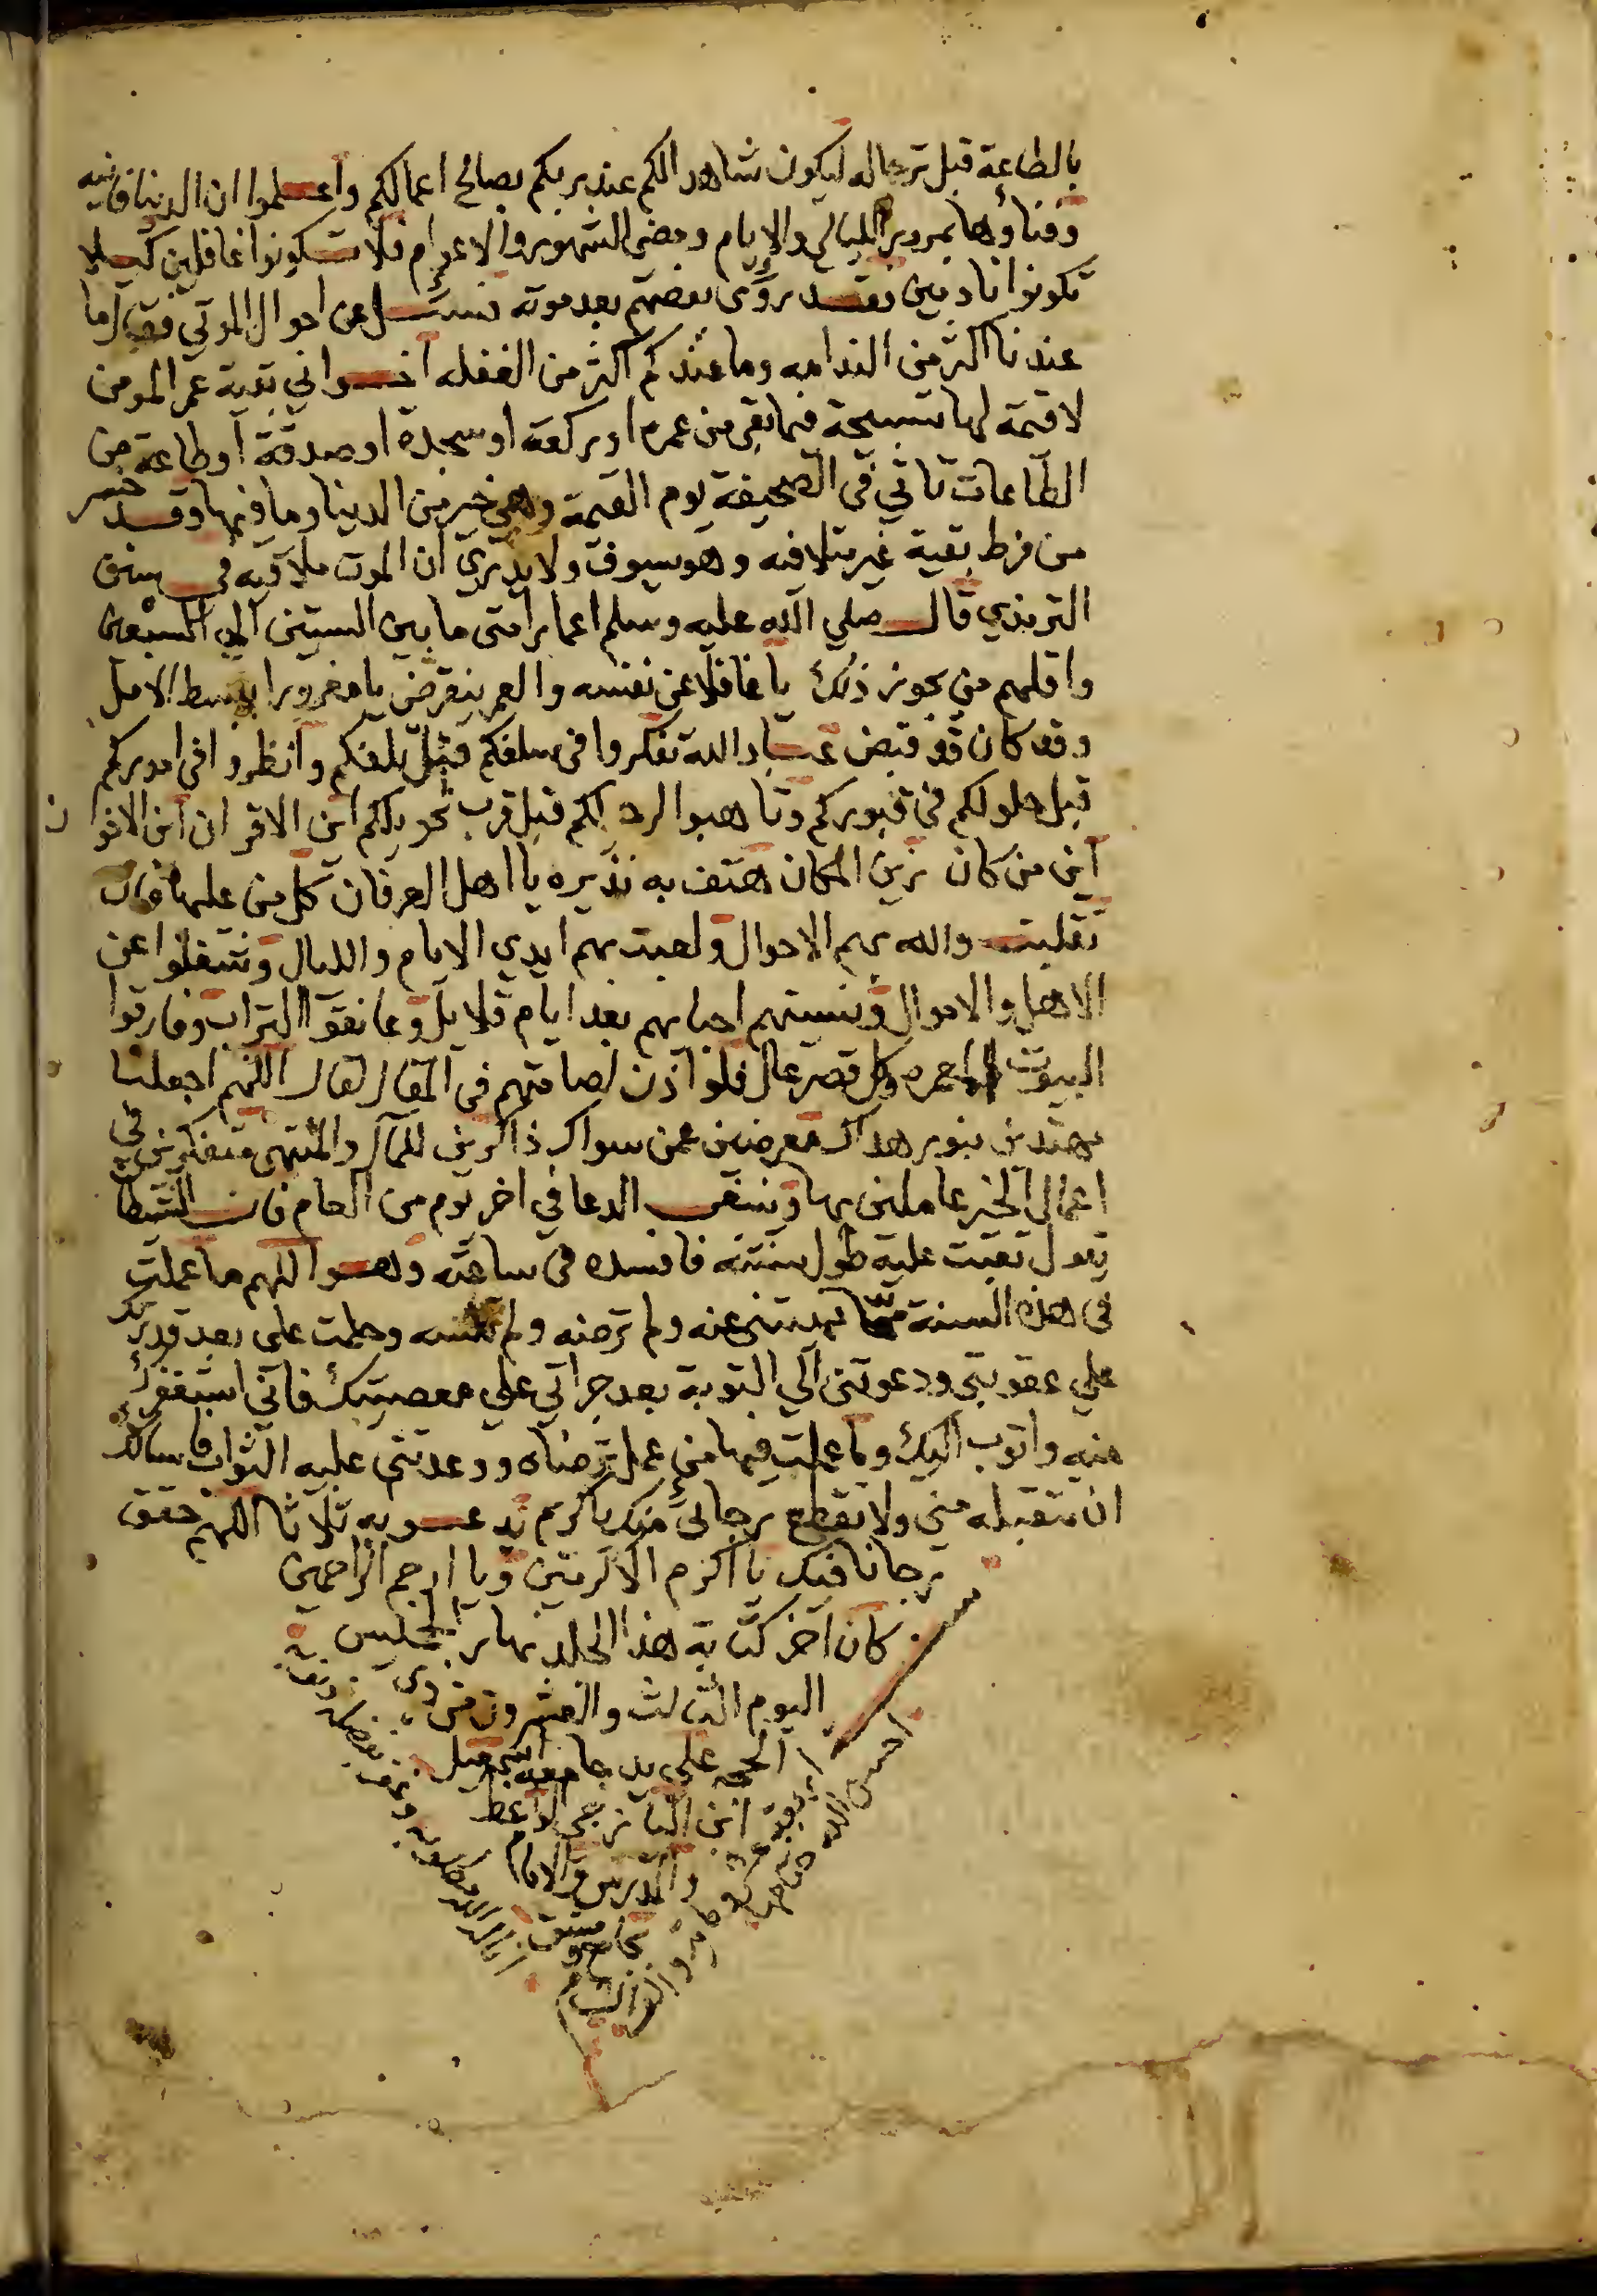 بالطاعة قبل ترحاله ليكون شاهدا لكم عند ربكم بصالح اعمالكم واعلموا ان الدنيا فانيه
وفناؤها بمرور الليالي والايام ومضي الشهور والاعوام فلا تكونوا غافلين كيلا
تكونوا نادمين فقد روى بعضهم بعد موته فسئل عن احوال الموتي فقال ما
عندنا اكثر من الندامه وما عندكم اكثر من الغفله اخواني بقية عمر المومن
لا قيمة لها تسبيحة فيما بقي من عمره او ركعة او سجدة او صدقة او طاعة من
الطاعات تاتي في الصحيفة يوم القيمة وهي خير من الدنيا وما فيها وقد خسر
من فرط بقية غير متلافيه وهو سيوف ولا يدري ان الموت ملاقيه في سنن
الترمذي قال صلي الله عليه وسلم اعمار امتى ما بين الستين الي السبعين
واقلهم من يجوز ذلك يا غافلا عن نفسه والعمر ينقرض يا مغرورا ببسط الامل
وقد كان قد قبض عباد الله تفكروا في سلفكم قبل تلفكم وانظروا في اموركم
قبل حلولكم في قبوركم وتاهبوا لرحيلكم قبل قرب تحويلكم اين الاقران اين الاخوان
اين من كان زين المكان هتف به نذيره يا اهل العرفان كل من عليها فان
تقلبت والله بهم الاحوال ولعبت بهم ايدي الايام والليال وشغلوا عن
الاهل والاموال ونسيتهم احبابهم بعد ايام قلايل وعانقوا التراب وفارقوا
البيوت العامره وكل قصر عال فلو اذن لصامتهم في المقال لقال اللهم اجعلنا
مهتدين بنور هداك معرضين عمن سواك ذاكرين للمآل والمنتهى متفكرين في
اعمال الخير عاملين بها وينبغي الدعا في اخر يوم من العام فان الشيطان
يقول تعبت عليه طول سنته فافسده في ساعته وهو اللهم ما عملت
في هذه السنة مما نهيتني عنه ولم ترضه ولم تنسه وحلمت على بعد قدرتك
علي عقوبتي ودعوتني الي التوبة بعد جراتي علي معصيتك فاني استغفرك
منه واتوب اليك وما عملت فيها من عمل ترضاه ووعدتني عليه الثواب فاسالك
ان تتقبله مني ولا تقطع رجائي منك يا كريم يدعو به ثلاثا اللهم حقق
رجانا فيك يا اكرم الاكرمين ويا ارحم الراحمين
كان اخر كتابة هذا الجلد نهار الخميس
اليوم الثالث والعشرون من ذي
الحجه على يد جامعه اسمعيل
ابن اليازجي الواعظ
والمدرس والامام
بجامع
دمشق
الشام
احسن الله ختامها